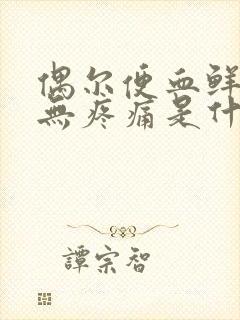 偶尔便血鲜
無疼痛是什
譚宗智